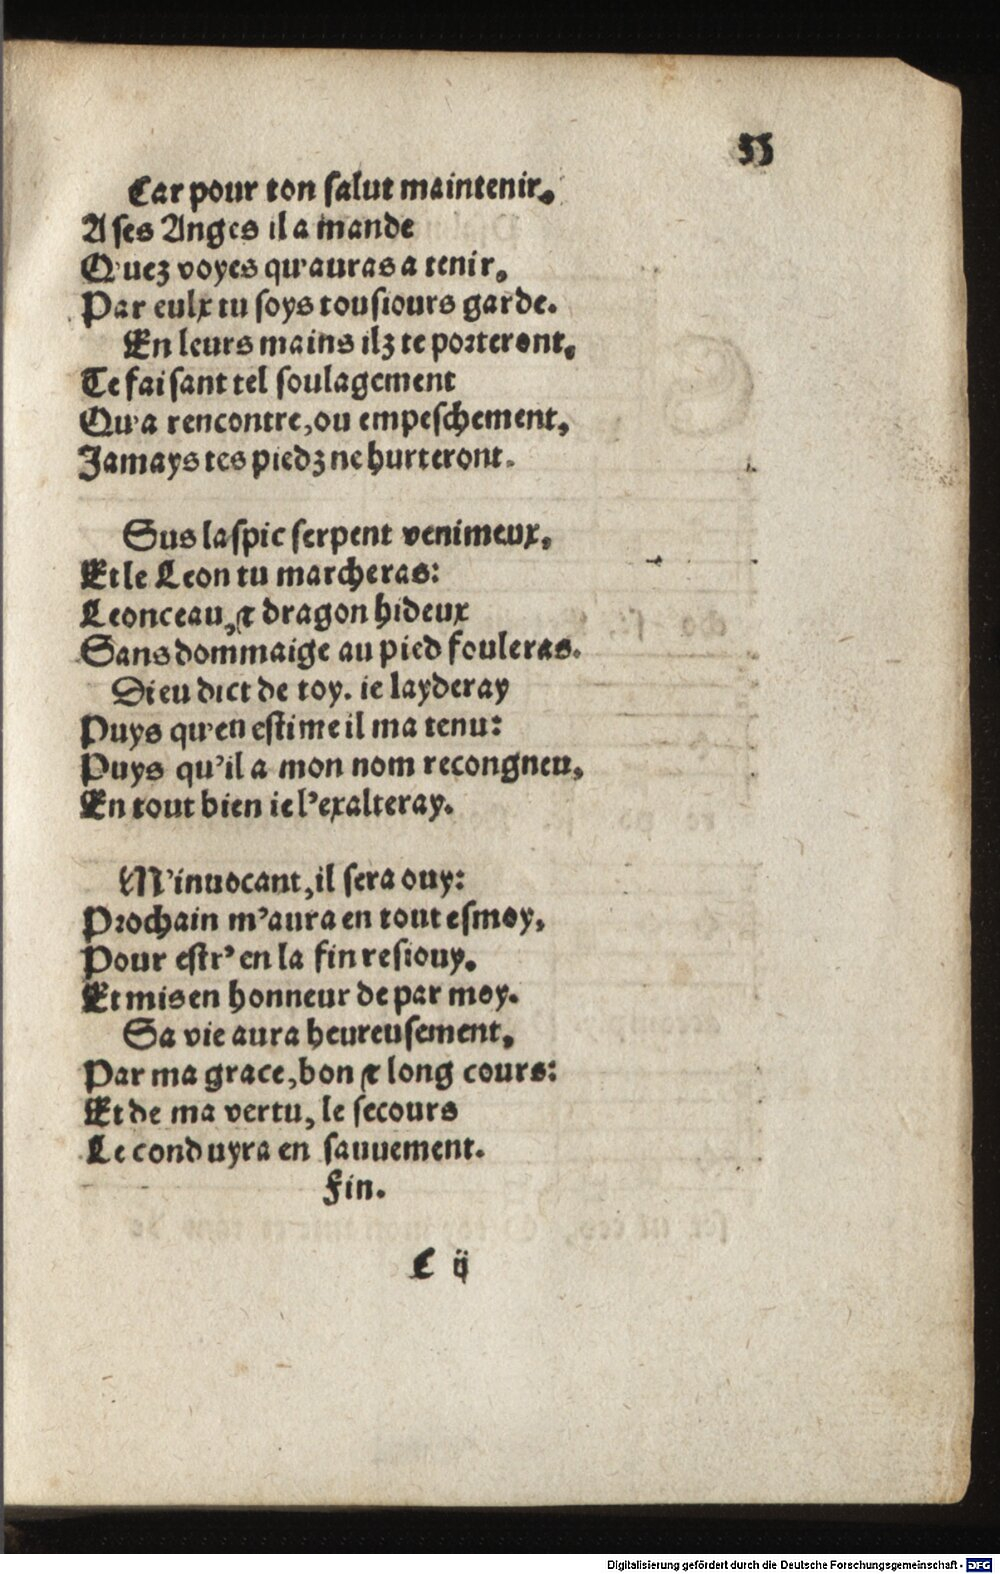 35
Car pour ton salut maintenir,
A ses Anges il a mande
Qu'ez voyes qu'auras a tenir,
Par eulx tu soys tousiours garde.
En leurs mains ilz te porteront,
Te faisant tel soulagement
Qu'a rencontre, ou empeschement,
Jamays tes piedz ne hurteront.
Sus laspic serpent venimeux,
Et le Leon tu marcheras:
Leonceau, & dragon hideux
Sans dommaige au pied fouleras.
Dieu dict de toy. ie layderay
Puys qu'en estime il ma tenu:
Puys qu'il a mon nom recongneu,
En tout bien ie l'exalteray.
M'inuocant, il sera ouy:
Prochain m'aura en tout esmoy,
Pour estr' en la fin resiouy.
Et mis en honneur de par moy.
Sa vie aura heureusement,
Par ma grace, bon & long cours:
Et de ma vertu, le secours
Le conduyra en sauuement.
Fin.
C ij
Digitalisierung gefördert durch die Deutsche Forschungsgemeinschaft - DFG